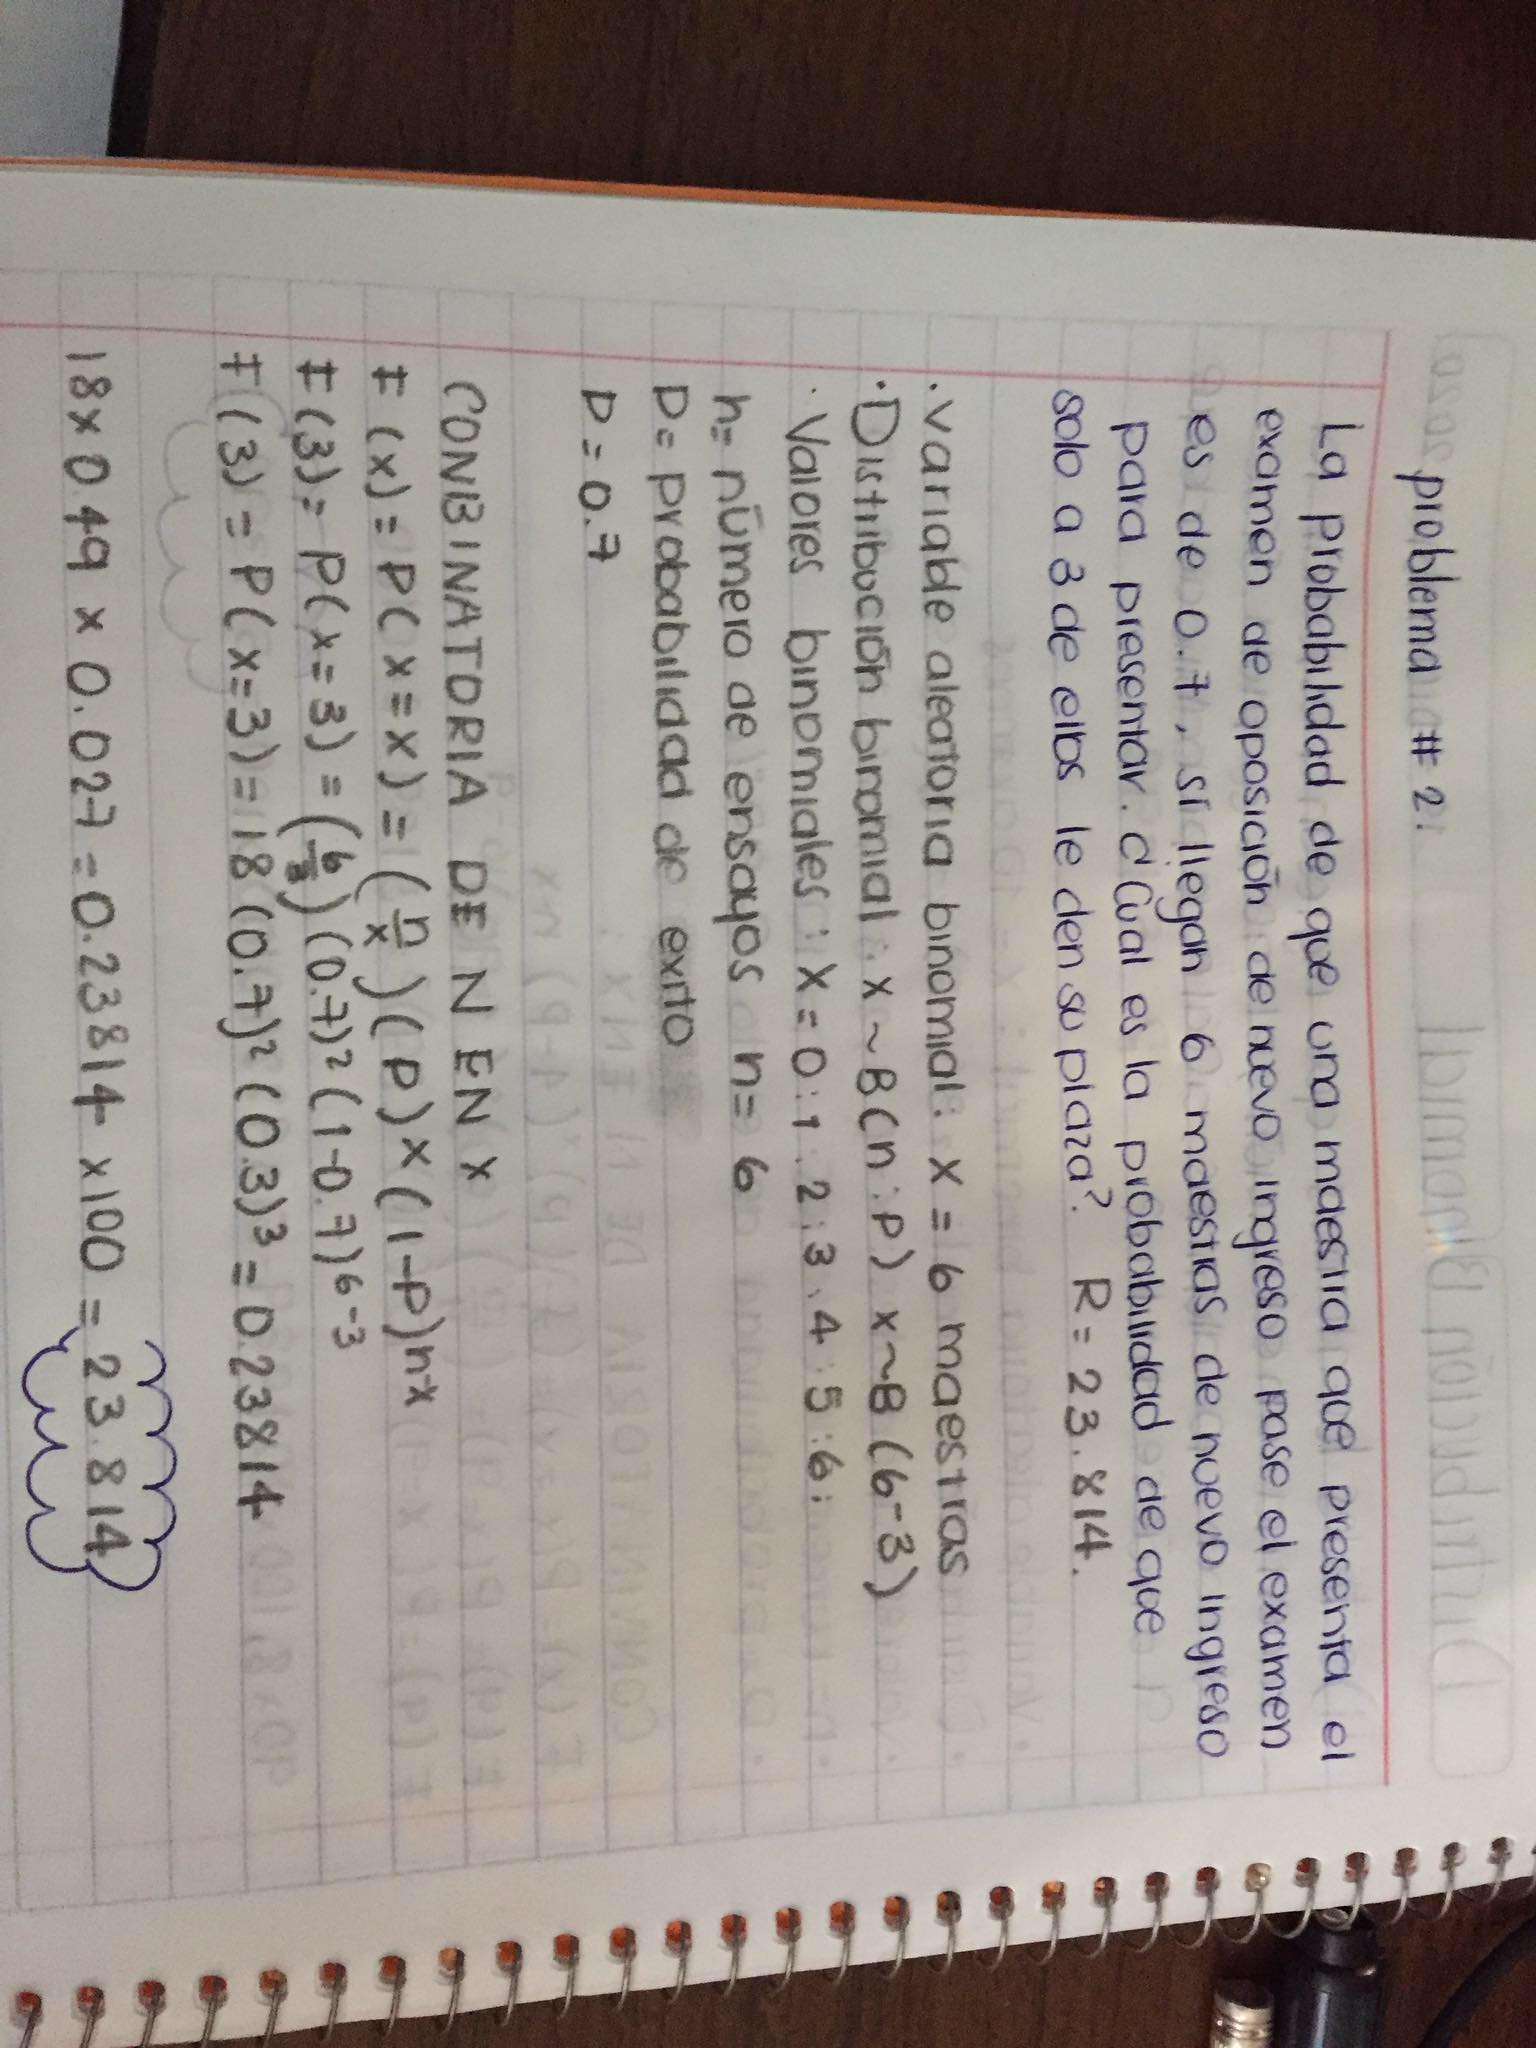 problema # 2:
La probabilidad de que una maestra que presenta el
examen de oposición de nuevo ingreso pase el examen
es de 0.7, si llegan 6 maestras de nuevo ingreso
para presentar. ¿Cual es la probabilidad de que
solo a 3 de ellas le den su plaza? R = 23.814.
· variable aleatoria binomial: x = 6 maestras
· Distribución binomial: x ~ B(n:p) x~B (6-3)
· Valores binomiales: x = 0:1.2:3.4:5:6:
n= número de ensayos n= 6
p= probabilidad de exito
p=0.7
CONBINATORIA DE N EN X
F (x) = P(x=x) = (n/x)(p)x(1-p)n-x
F (3) = P(x=3) = (6/3)(0.7)²(1-0.7)6-3
F (3) = P(x=3)=18(0.7)²(0.3)³=0.23814
18x0.49 x 0.027 = 0.23814 x100 = 23.814